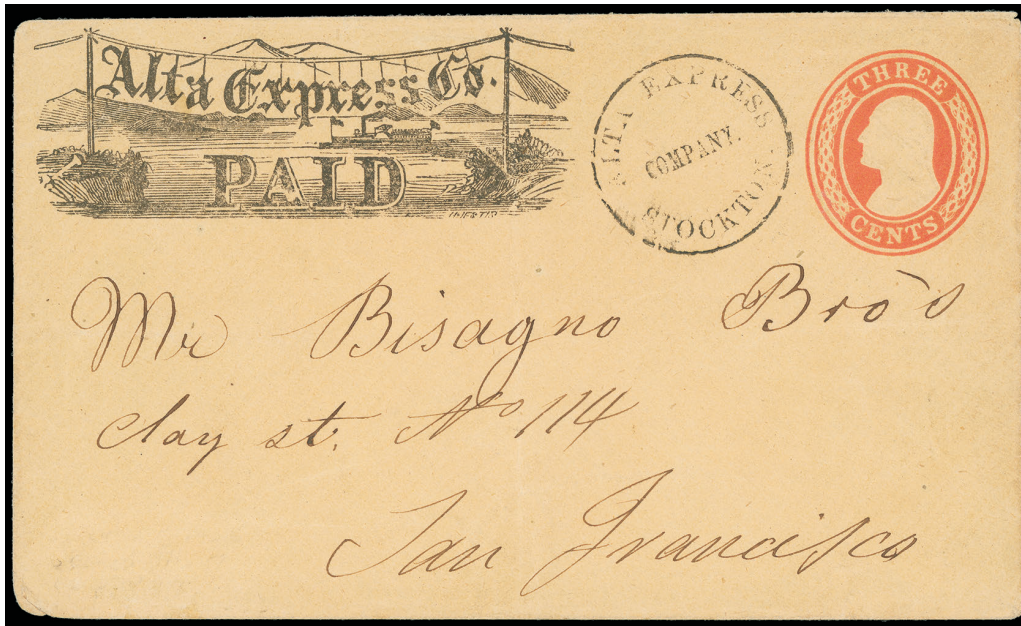 Alta Express Co.
PAID
ALTA EXPRESS
COMPANY.
STOCKTON
THREE
CENTS
Mr Bisagno Bro's
Clay st. No 114
San Francisco